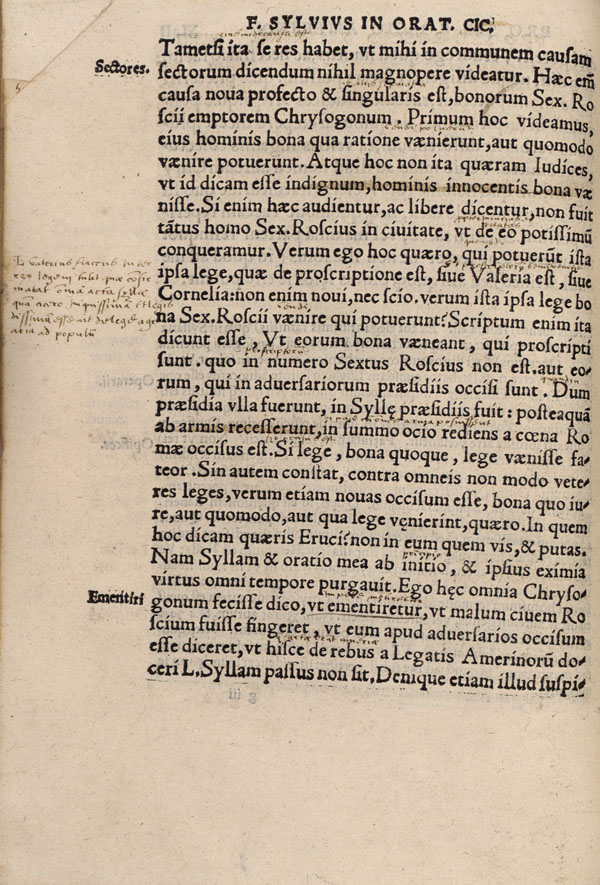 F. SYLVIVS IN ORAT. CIC.
Tametsi ita se res habet, vt mihi in communem causam
Sectores.
sectorum dicendum nihil magnopere videatur. Hæc em̄
causa noua profecto & singularis est, bonorum Sex. Ro
scii emptorem Chrysogonum. Primum hoc videamus,
eius hominis bona qua ratione vænierunt, aut quomodo
vænire potuerunt. Atque hoc non ita quæram Iudices,
vt id dicam esse indignum, hominis innocentis bona væ
nisse. Si enim hæc audientur, ac libere dicentur, non fuit
tātus homo Sex. Roscius in ciuitate, vt de eo potissimū
conqueramur. Verum ego hoc quæro, qui potuerūt ista
ipsa lege, quæ de proscriptione est, siue Valeria est, siue
Cornelia: non enim noui, nec scio. verum ista ipsa lege bo
na Sex. Roscii vænire qui potuerunt? Scriptum enim ita
dicunt esse, Vt eorum bona væneant, qui proscripti
sunt. quo in numero Sextus Roscius non est. aut eo-
rum, qui in aduersariorum præsidiis occisi sunt. Dum
præsidia vlla fuerunt, in Syllę præsidiis fuit: posteaquā
ab armis recesserunt, in summo ocio rediens a cœna Ro
mæ occisus est. Si lege, bona quoque, lege vænisse fa-
teor. Sin autem constat, contra omneis non modo vete-
res leges, verum etiam nouas occisum esse, bona quo iu-
re, aut quomodo, aut qua lege venierint, quæro. In quem
hoc dicam quæris Eruci? non in eum quem vis, & putas.
Nam Syllam & oratio mea ab initio, & ipsius eximia
virtus omni tempore purgauit. Ego hęc omnia Chryso-
Ementiri
gonum fecisse dico, vt ementiretur, vt malum ciuem Ro
scium fuisse fingeret, vt eum apud aduersarios occisum
esse diceret, vt hisce de rebus a Legatis Amerinorū do-
ceri L. Syllam passus non sit. Denique etiam illud suspi-